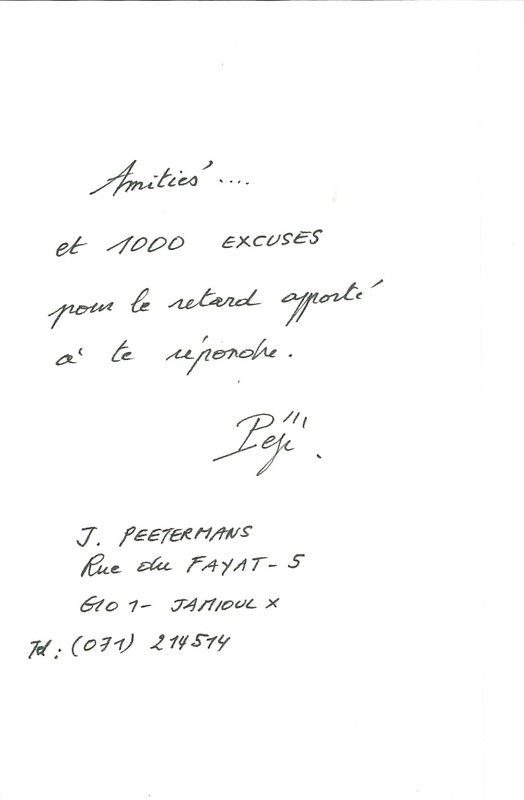 Amitiés ....
et 1000 EXCUSES
pour le retard apporté
à te répondre.
J. PEETERMANS
Rue du FAYAT - 5
6101 - JAMIOULX
Tel : (071) 214514